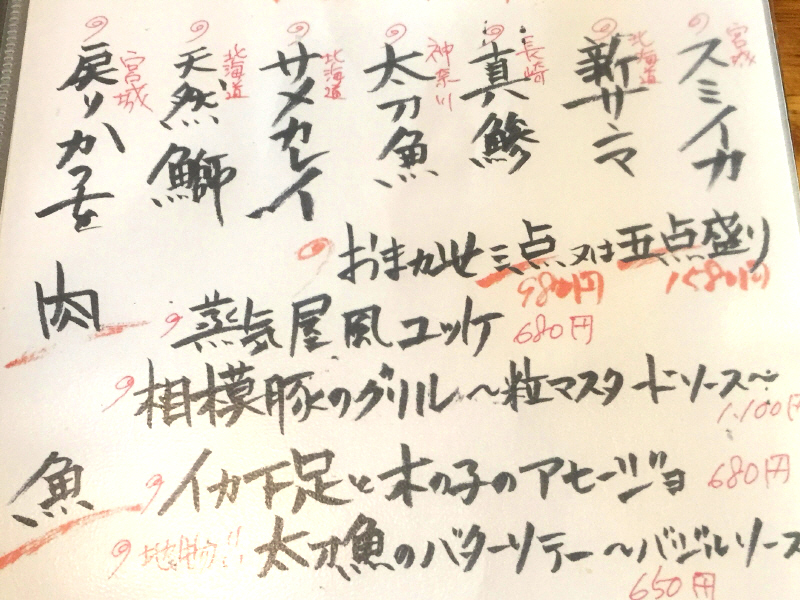 宮城 スミイカ
北海道 新サンマ
長崎 真鯵
神奈川 太刀魚
北海道 サメカレイ
北海道 天然鰤
宮城 戻りかつを
おまかせ三点又は五点盛り
980円 1580円
肉
蒸気屋風ユッケ 680円
相模豚のグリル～粒マスタードソース～
1.100円
魚
イカ下足と木の子のアヒージョ 680円
地物!! 太刀魚のバターソテー～バジルソース
650円